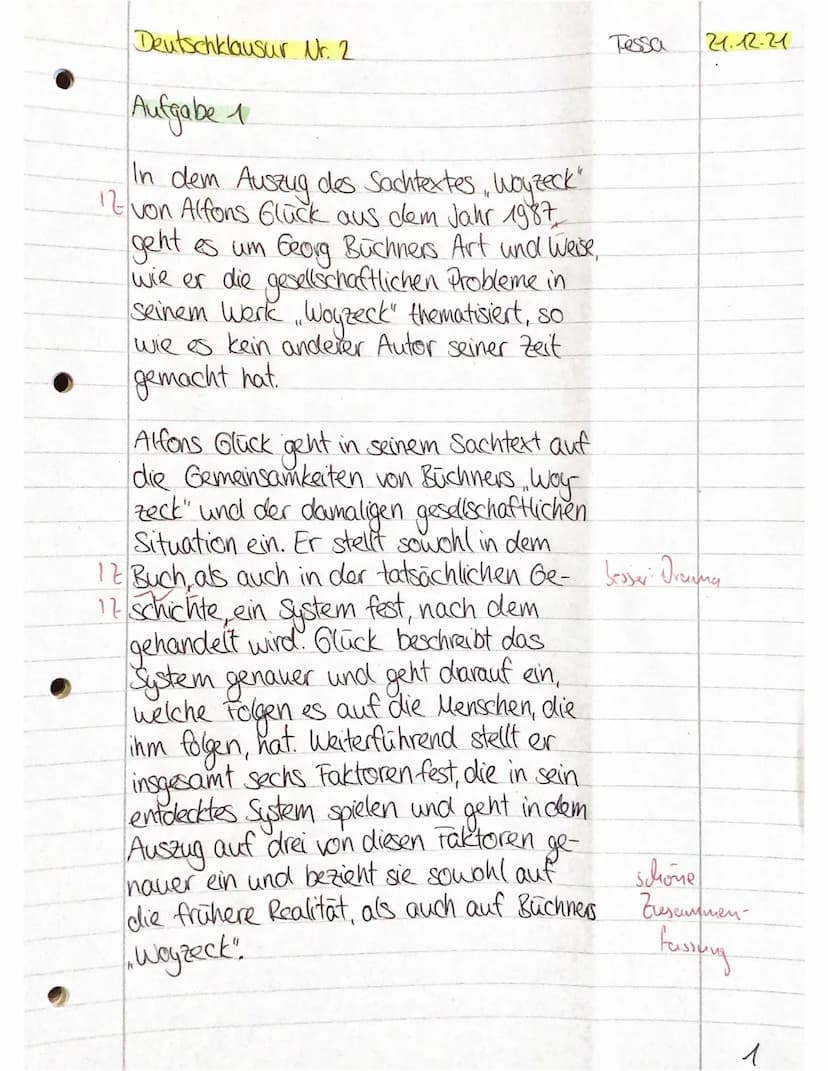 Deutschklausur Nr. 2 Tessa 21.12.21
Aufgabe 1
In dem Auszug des Sachtextes „Woyzeck"
1Z von Alfons Glück aus dem Jahr 1987
geht es um Georg Büchners Art und Weise,
wie er die gesellschaftlichen Probleme in
seinem Werk „Woyzeck" thematisiert, so
wie es kein anderer Autor seiner Zeit
gemacht hat.
Alfons Glück geht in seinem Sachtext auf
die Gemeinsamkeiten von Büchners „Woy-
zeck" und der damaligen gesellschaftlichen
Situation ein. Er stellt sowohl in dem
1Z Buch, als auch in der tatsächlichen Ge- besser: Drama
1Z schichte, ein System fest, nach dem
gehandelt wird. Glück beschreibt das
System genauer und geht darauf ein,
welche Folgen es auf die Menschen, die
ihm folgen, hat. Weiterführend stellt er
insgesamt sechs Faktoren fest, die in sein
entdecktes System spielen und geht in dem
Auszug auf drei von diesen Faktoren ge-
nauer ein und bezieht sie sowohl auf schöne
die frühere Realität, als auch auf Büchners Zusammen-
„Woyzeck". fassung
1